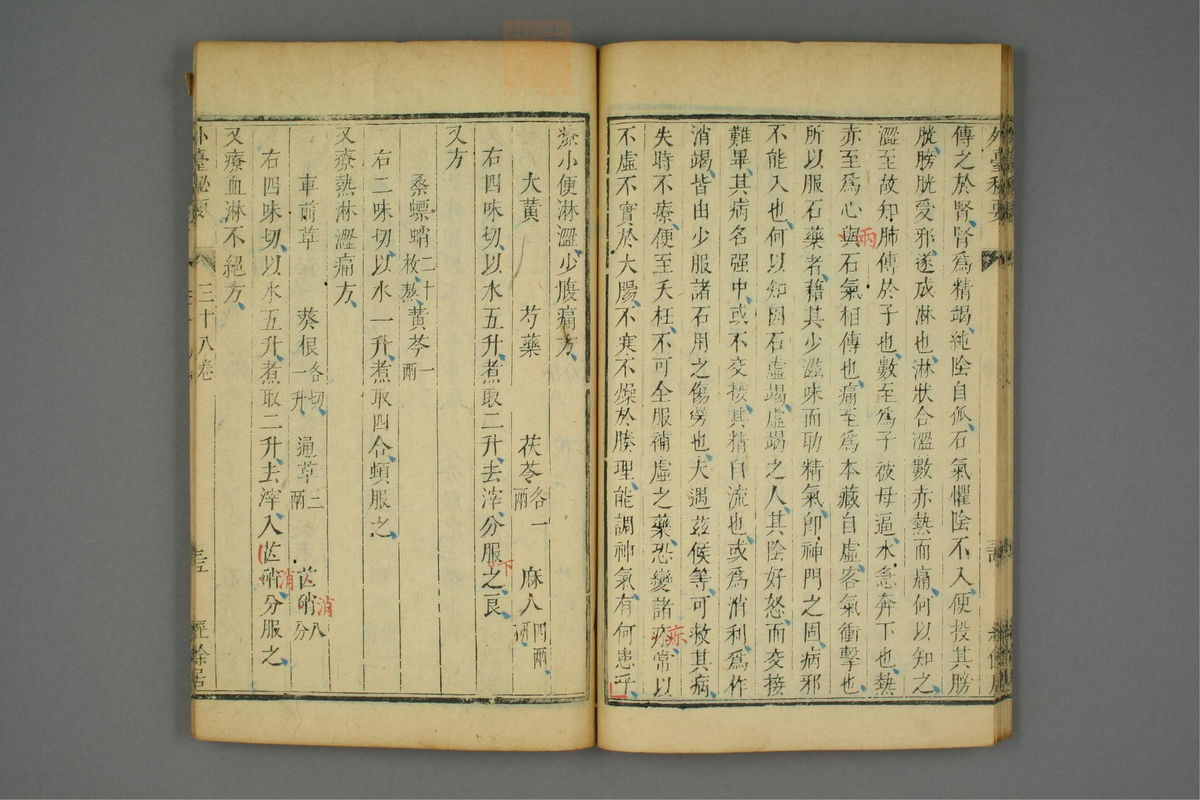 外臺秘要
傳之於腎腎爲精竭純陰自孤石氣懼陰不入便投其膀
胱膀胱受邪遂成淋也淋狀合澀數赤熱而痛何以知之
澀至故知肺傳於子也數至爲子被母逼水急奔下也熱
赤至爲心與石氣相傳也痛至爲本藏自虛客氣衝擊也
兩
所以服石藥者藉其少滋味而助精氣卽神門之固病邪
不能入也何以知因石虛竭虛竭之人其陰好怒而交接
難畢其病名强中或不交接其精自流也或爲消利爲作
消竭皆由少服諸石用之傷勞也夫遇茲候等可救其病
失時不療便至夭枉不可全服補虛之藥恐變諸疹常以
疢
不虛不實於大腸不寒不燥於腠理能調神氣有何患乎
療小便淋澀少腹痛方
大黃 芍藥 茯苓各一兩 麻人四兩研
右四味切以水五升煮取二升去滓分服之良
下
又方
桑螵蛸二十枚熬 黃芩一兩
右二味切以水一升煮取四合頓服之
又療熱淋澀痛方
車前草 葵根各切一升 通草三兩 芒硝八分
消
右四味切以水五升煮取二升去滓入芒硝分服之
消
又療血淋不絕方
外臺秘要 三十八卷 經餘居